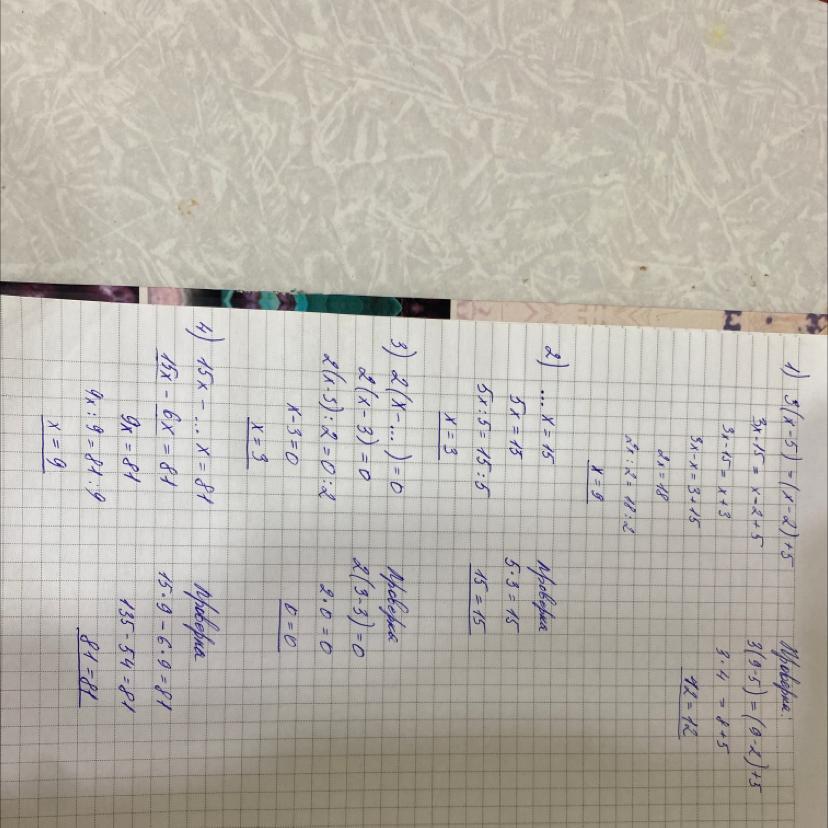 1) 3(x-5)=(x-2)+5
3x-15=x-2+5
3x-15=x+3
3x-x=3+15
2x=18
2x:2=18:2
x=9
Проверка:
3(9-5)=(9-2)+5
3·4=8+5
12=12
2) ...x=15
5x=15
5x:5=15:5
x=3
Проверка
5·3=15
15=15
3) 2(x-...)=0
2(x-3)=0
2(x-3):2=0:2
x-3=0
x=3
Проверка
2(3-3)=0
2·0=0
0=0
4) 15x-...x=81
15x-6x=81
9x=81
9x:9=81:9
x=9
Проверка
15·9-6·9=81
135-54=81
81=81